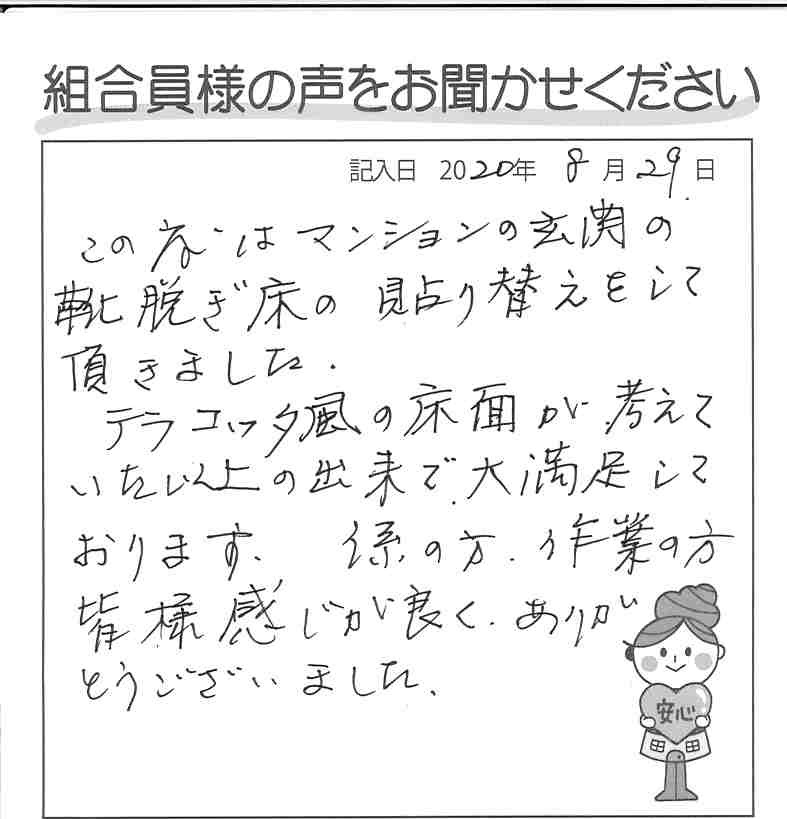 組合員様の声をお聞かせください
記入日 2020年 8月 29日
この度はマンションの玄関の
靴脱ぎ床の貼り替えをして
頂きました.
テラコッタ風の床面が考えて
いた以上の出来で、大満足して
おります、 係の方、作業の方
皆様感じが良く、ありが
とうございました、
安心